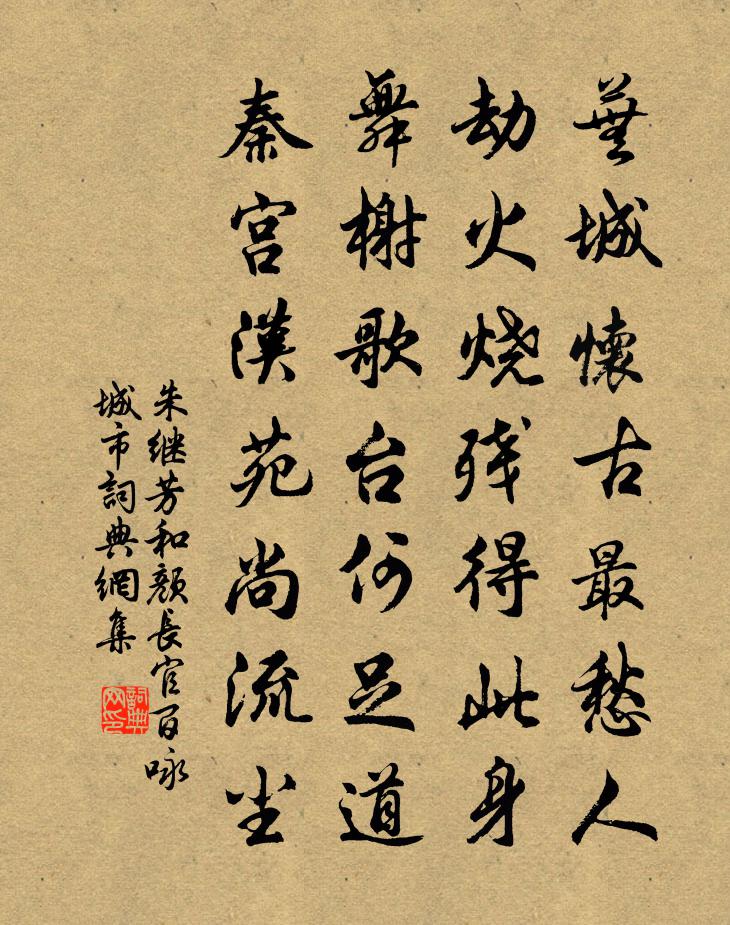 蕪城懷古最愁人
劫火烧残得此身
舞榭歌台何足道
秦宫漢苑尚流尘
朱继芳和颜長官百咏
城市詞典網集
詞典
网印